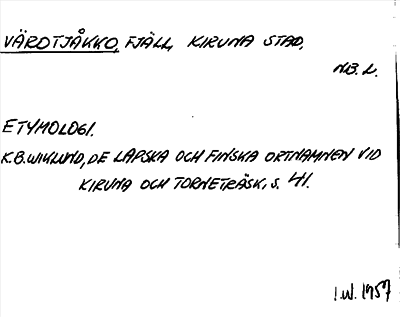 VÄRDTJÅKKO, FJÄLL, KIRUNA STAD,
N.B. L.
ETYMOLOGI.
K.B. WIKLUND, DE LAPSKA OCH FINSKA ORTNAMNEN VID
KIRUNA OCH TORNETRÄSK, S. 41.
I.W. 1957